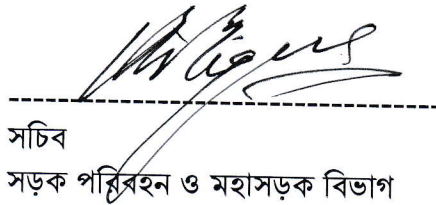 সচিব
সড়ক পরিবহন ও মহাসড়ক বিভাগ